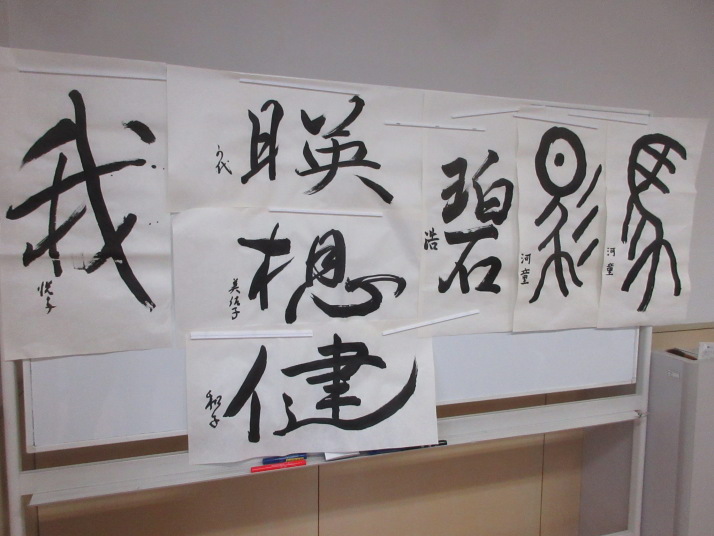 我
悦子
想
美佐子
健
和子
碧
浩
河童
馬
河童